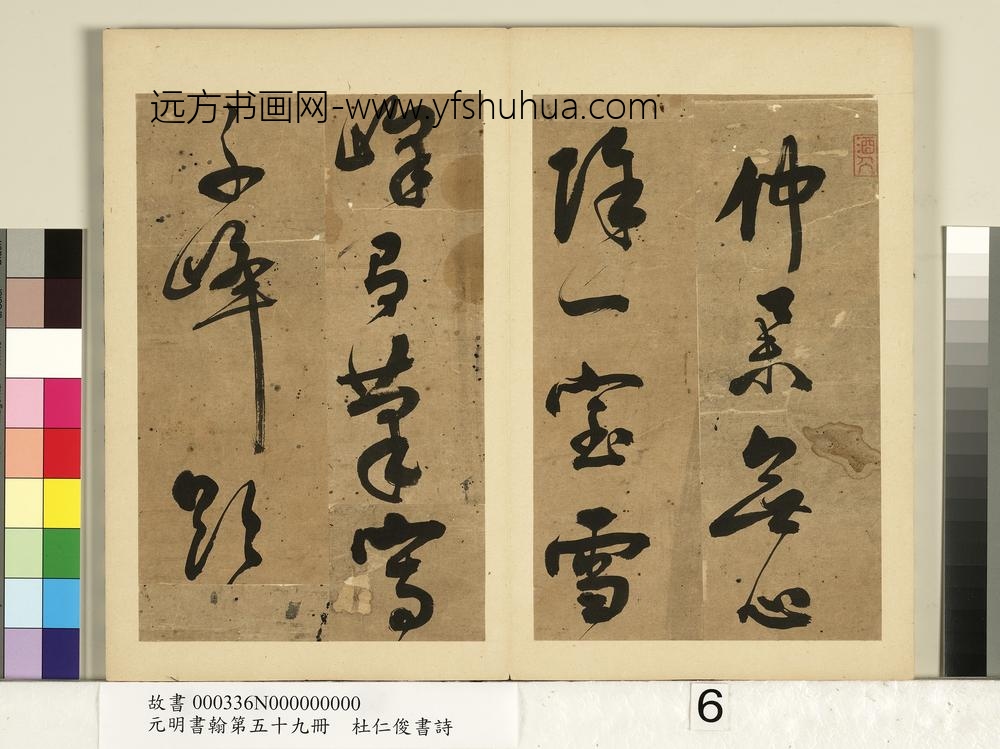 远方书画网-www.yfshuhua.com
仲舉無心
除一室雪
峰筆寫
子峰
故書 000336N000000000
元明書翰第五十九冊 杜仁俊書詩
6